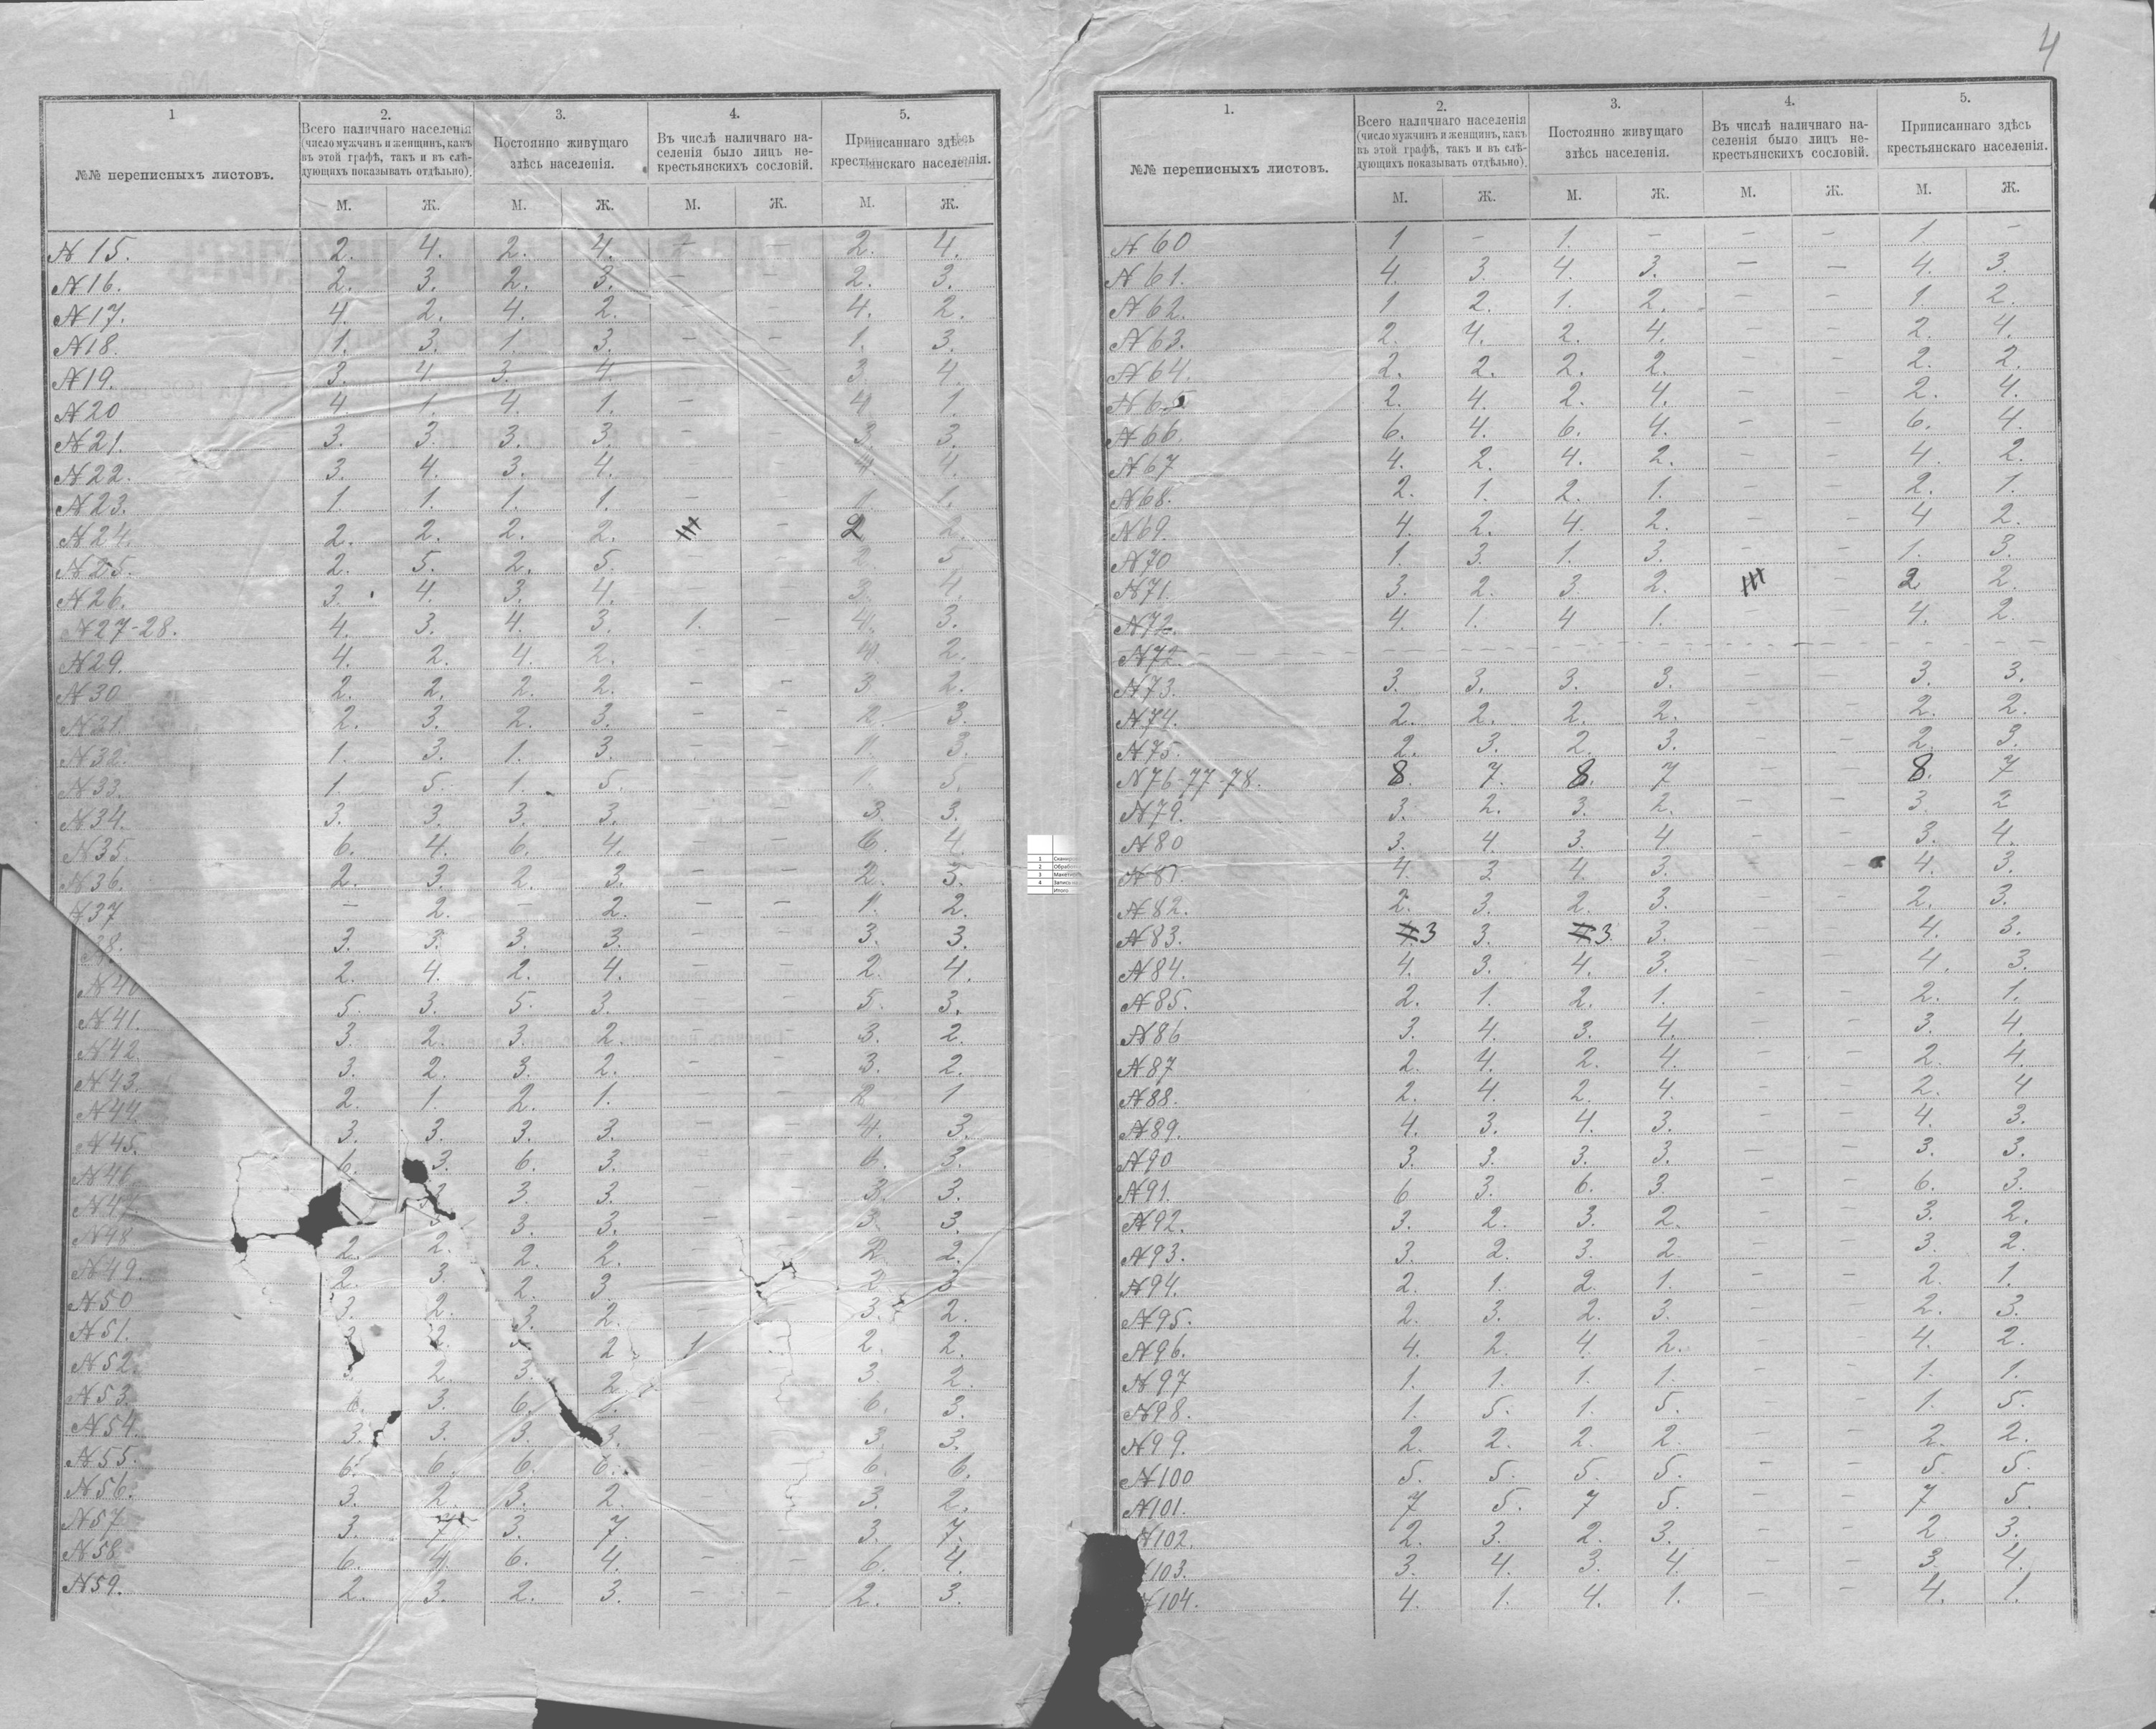 4
1
2.
3.
4.
5.
№№ переписныхъ листовъ.
Всего наличнаго населенія (число мужчинъ и женщинъ, какъ въ этой графѣ, такъ и въ слѣдующихъ показывать отдѣльно).
Постоянно живущаго здѣсь населенія.
Въ числѣ наличнаго населенія было лицъ некрестьянскихъ сословій.
Приписаннаго здѣсь крестьянскаго населенія.
М. Ж. М. Ж. М. Ж. М. Ж.
№ 15. 2. 4. 2. 4. - - 2. 4.
№ 16. 2. 3. 2. 3. - - 2. 3.
№ 17. 4. 2. 4. 2. 4. 2.
№ 18. 1. 3. 1. 3. - - 1. 3.
№ 19. 3. 4 3. 4. - 3. 4.
№ 20 4. 1. 4. 1. - - 4 1.
№ 21. 3. 3. 3. 3. - 3. 3.
№ 22. 3. 4. 3. 4. - 4. 4.
№ 23. 1. 1. 1. 1. - 1. 1.
№ 24. 2. 2. 2. 2. - 2 2.
№ 25. 2. 5. 2. 5. 2. 5
№ 26. 3. 4. 3. 4. - 3. 4.
№ 27-28. 4. 3. 4. 3. 1. - 4. 3.
№ 29. 4. 2. 4. 2. - - 4. 2.
№ 30 2. 2. 2. 2. - - 3 2.
№ 31. 2. 3. 2. 3. - - 2. 3.
№ 32. 1. 3. 1. 3. - - 1. 3.
№ 33. 1. 5. 1. 5. 1. 5.
№ 34. 3. 3. 3. 3. - - 3. 3.
№ 35. 6. 4. 6. 4. - - 6. 4.
№ 36. 2. 3. 2. 3. - - 2. 3.
№ 37 - 2. - 2. - - 1. 2.
38. 3. 3. 3. 3. - - 3. 3.
2. 4. 2. 4. - - 2. 4.
№ 40 5. 3. 5. 3. - 5. 3.
№ 41. 3. 2. 3. 2. - - 3. 2.
№ 42. 3. 2. 3. 2. - - 3. 2.
№ 43. 2. 1. 2. 1. - - 2 1
№ 44. 3. 3. 3. 3. - - 4. 3.
№ 45. 6. 3. 6. 3. - 6. 3.
№ 46 3. 3. 3. - 3. 3.
№ 47. 3. 3. 3. - - 3. 3.
№ 48 2. 2. 2. 2. - - 2. 2.
№ 49. 2. 3. 2. 3. - 2. 3
№ 50 3. 2. 3. 2. - 3. 2.
№ 51. 3. 2. 2 1. - 2. 2.
№ 52. 3. 2. 3. 2. 3. 2.
№ 53. 6. 3. 6. - 6. 3.
№ 54. 3. 3. 3. 3. - 3. 3.
№ 55. 6. 6. 6. 6. - 6. 6.
№ 56. 3. 2. 3. 2. - 3. 2.
№ 57 3. 7 3. 7. - 3. 7.
№ 58 6. 4. 6. 4. - - 6. 4.
№ 59. 2. 3. 2. 3. - 2. 3.
1.
2.
3.
4.
5.
№№ переписныхъ листовъ.
Всего наличнаго населенія (число мужчинъ и женщинъ, какъ въ этой графѣ, такъ и въ слѣдующихъ показывать отдѣльно).
Постоянно живущаго здѣсь населенія.
Въ числѣ наличнаго населенія было лицъ некрестьянскихъ сословій.
Приписаннаго здѣсь крестьянскаго населенія.
М. Ж. М. Ж. М. Ж. М. Ж.
№ 60 1 - 1. - - - 1. -
№ 61. 4. 3. 4. 3. - - 4. 3.
№ 62. 1 2. 1. 2. - - 1. 2.
№ 63. 2. 4. 2. 4. - - 2. 4.
№ 64. 2. 2. 2. 2. - - 2. 2.
№ 65 2. 4. 2. 4. - - 2. 4.
№ 66. 6. 4. 6. 4. - - 6. 4.
№ 67 4. 2. 4. 2. - - 4. 2.
№ 68. 2. 1. 2. 1. - - 2. 1.
№ 69. 4. 2. 4. 2. - - 4 2.
№ 70 1. 3. 1. 3. - - 1. 3.
№ 71. 3. 2. 3. 2. - 2. 2.
№ 72. 4. 1. 4 1. - - 4. 2.
№ 72. - - - - - - - -
№ 73. 3. 3. 3. 3. - - 3. 3.
№ 74. 2. 2. 2. 2. - - 2. 2.
№ 75. 2. 3. 2. 3. - - 2. 3.
№ 76-77-78. 8. 7. 8. 7 - - 8. 7
№ 79. 3. 2. 3. 2. - - 3. 2
№ 80 3. 4. 3. 4. - - 3. 4.
№ 81. 4. 3 4. 3. - - 4. 3.
№ 82. 2. 3. 2. 3. - - 2. 3.
№ 83. 3 3. 3. 3. - - 4. 3.
№ 84. 4. 3. 4. 3. - - 4. 3.
№ 85. 2. 1. 2. 1. - - 2. 1.
№ 86 3. 4. 3. 4. - - 3. 4.
№ 87 2. 4. 2. 4. - - 2. 4.
№ 88. 2. 4. 2. 4. - - 2. 4
№ 89. 4. 3. 4. 3. - - 4. 3.
№ 90 3. 3. 3. 3. - - 3. 3.
№ 91. 6 3. 6. 3. - - 6. 3.
№ 92. 3. 2. 3. 2. - - 3. 2.
№ 93. 3. 2. 3. 2. - - 3. 2.
№ 94. 2. 1. 2. 1. - - 2. 1.
№ 95. 2. 3. 2. 3. - - 2. 3.
№ 96. 4. 2. 4. 2. - - 4. 2.
№ 97 1. 1. 1. 1. - - 1. 1.
№ 98. 1. 5. 1. 5. - - 1. 5.
№ 99. 2. 2. 2. 2. - - 2. 2.
№ 100 5. 5. 5. 5. - - 5. 5.
№ 101. 7 5. 7 5. - - 7 5.
№ 102. 2. 3. 2. 3. - - 2. 3.
№ 103. 3. 4. 3. 4. - - 3. 4.
№ 104. 4. 1. 4. 1. - - 4. 1.